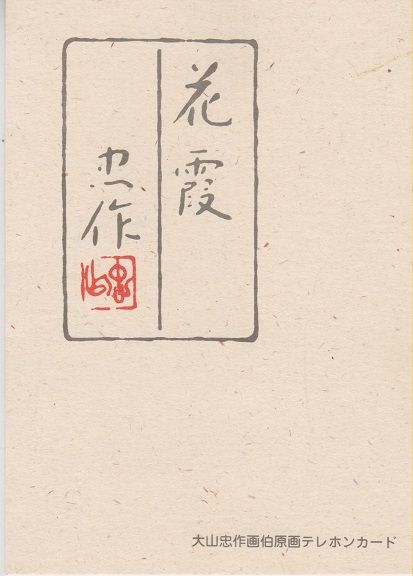 花霞
忠作
大山忠作画伯原画テレホンカード